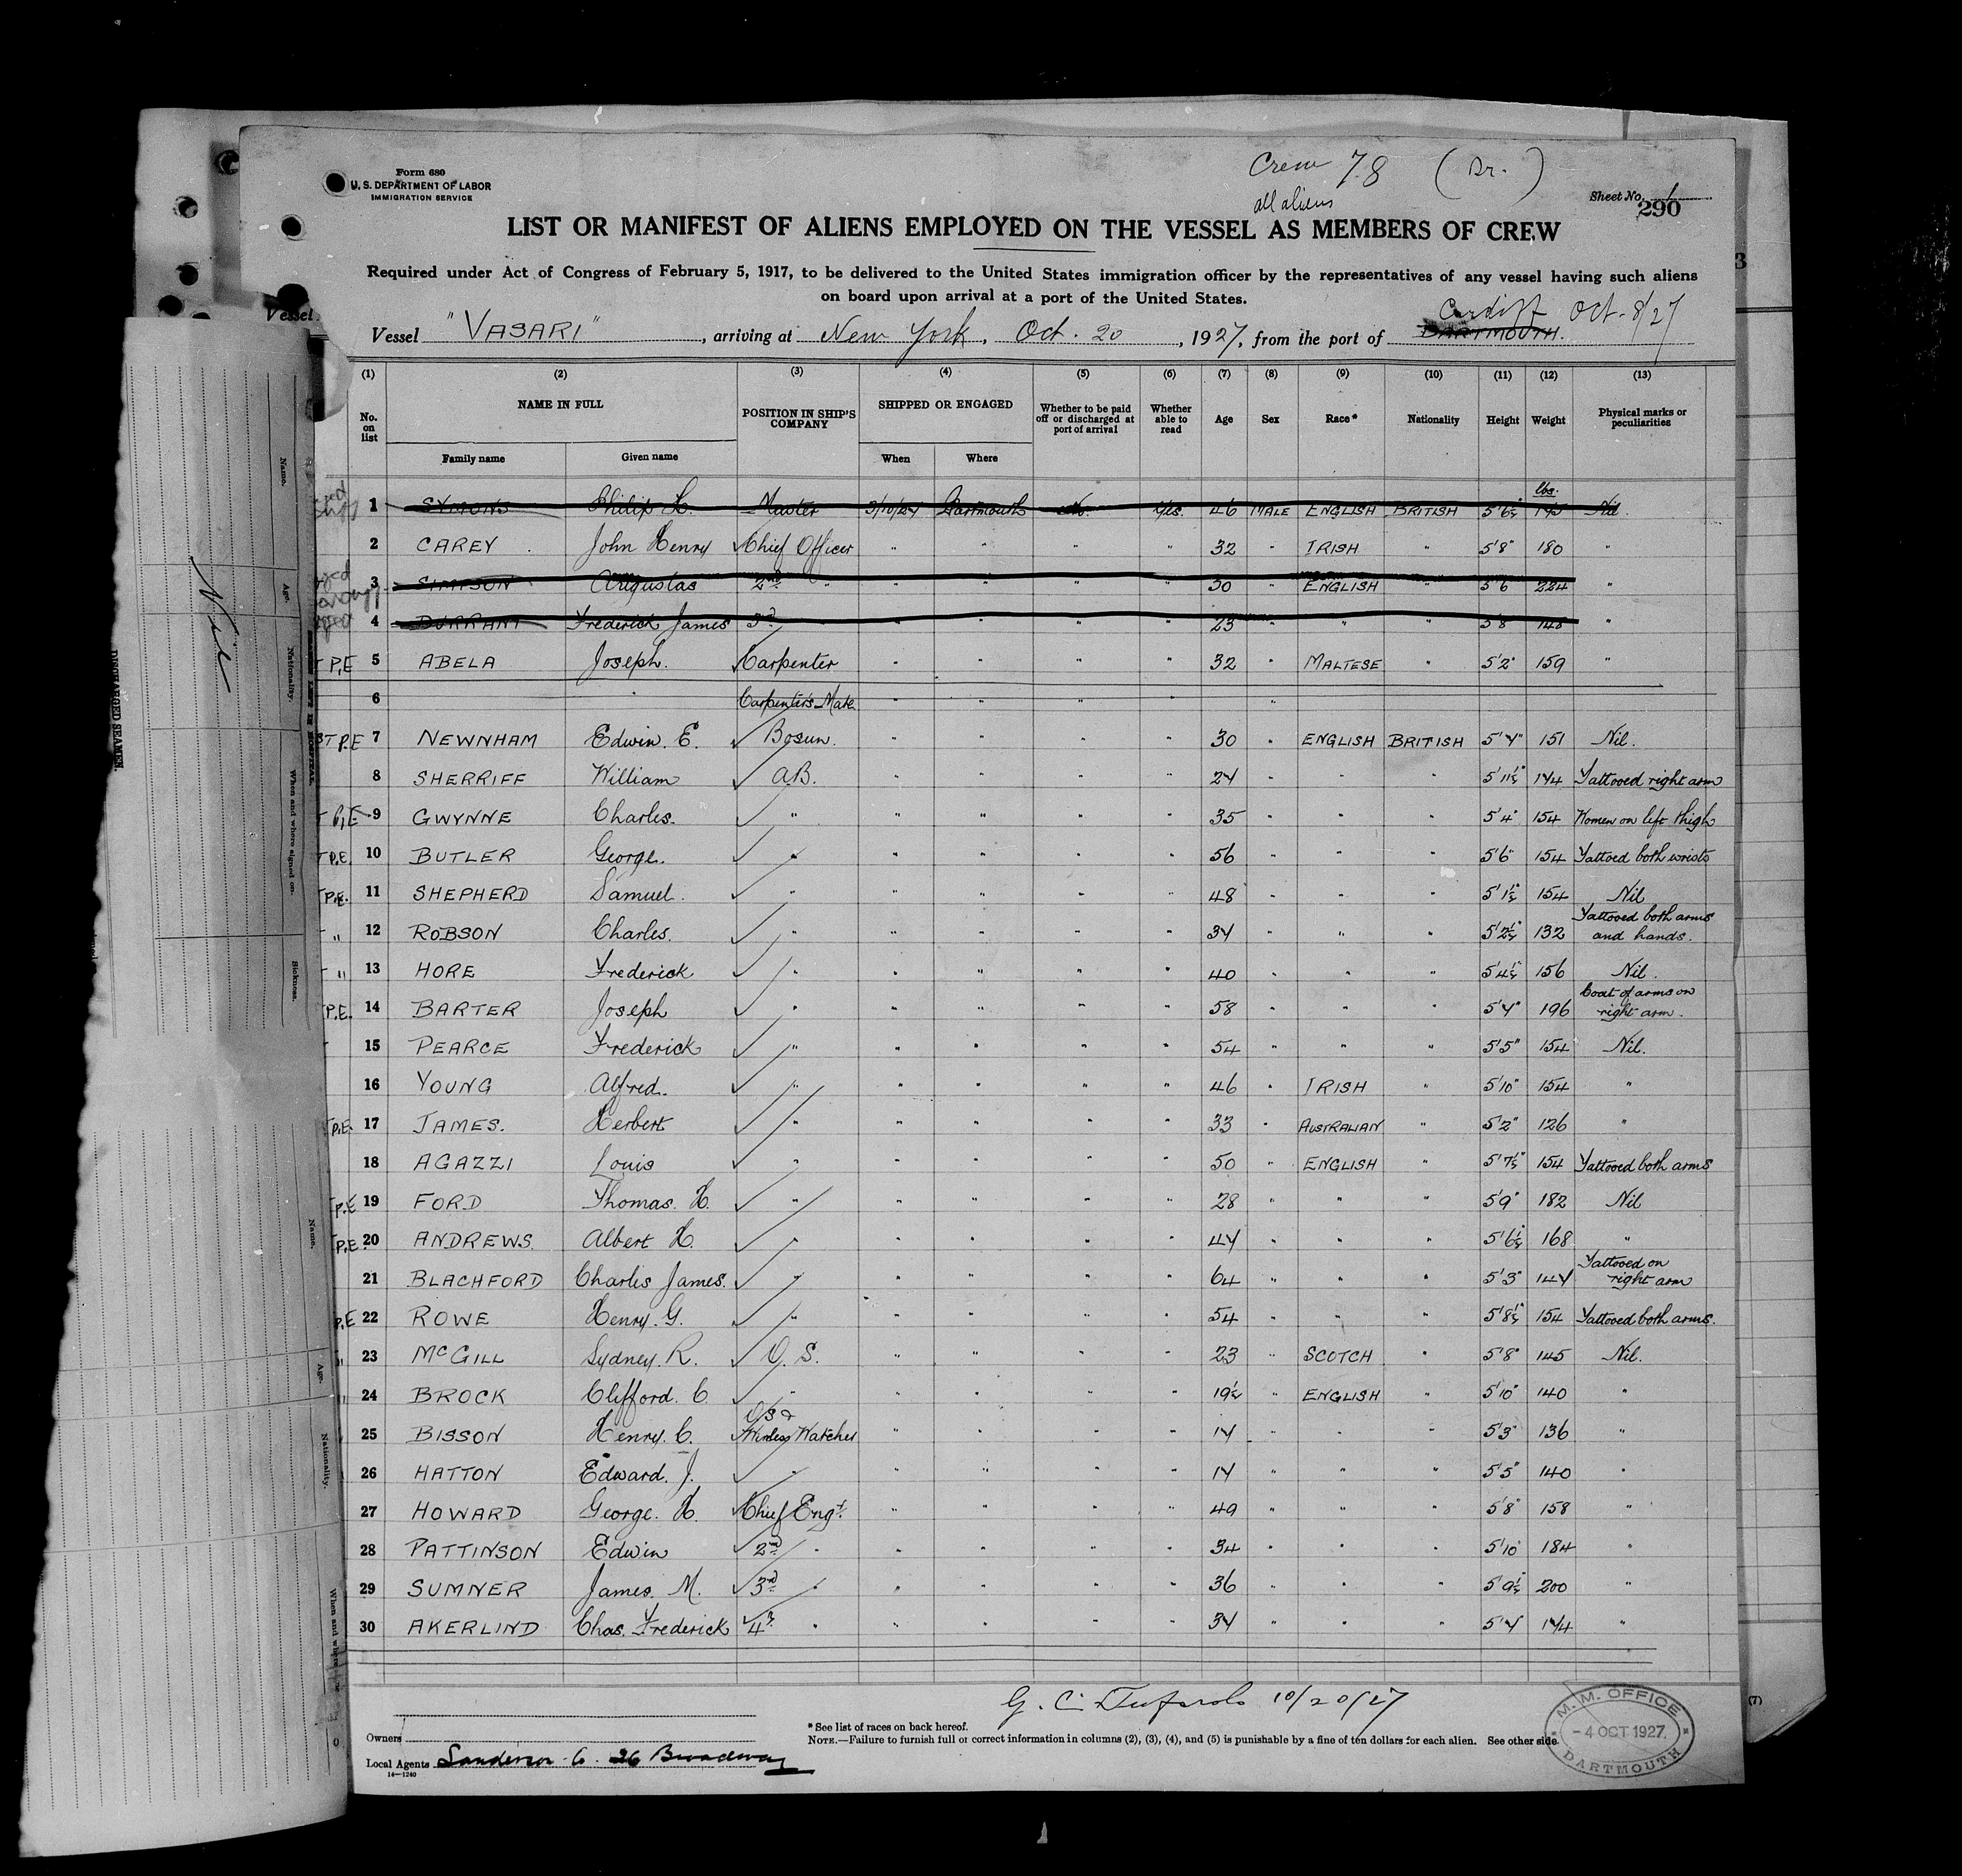 Crew 78 (Br.)
all aliens
Form 680
U. S. DEPARTMENT OF LABOR
IMMIGRATION SERVICE
Sheet No. 1
290
LIST OR MANIFEST OF ALIENS EMPLOYED ON THE VESSEL AS MEMBERS OF CREW
Required under Act of Congress of February 5, 1917, to be delivered to the United States immigration officer by the representatives of any vessel having such aliens
on board upon arrival at a port of the United States.
Cardiff Oct. 8/27
Vessel "VASARI", arriving at New York, Oct. 20, 1927, from the port of DARTMOUTH.
(1) (2) (3) (4) (5) (6) (7) (8) (9) (10) (11) (12) (13)
No. on list NAME IN FULL POSITION IN SHIP'S COMPANY SHIPPED OR ENGAGED Whether to be paid off or discharged at port of arrival Whether able to read Age Sex Race* Nationality Height Weight Physical marks or peculiarities
Family name Given name When Where
lbs.
1 SYMONS Philip H. Master 3/10/27 Dartmouth No. Yes. 46 MALE ENGLISH BRITISH 5'6½" Nil.
2 CAREY John Henry Chief Officer " " " " 32 " IRISH " 5'8" 180 "
3 SIMPSON Augustas 2nd " " " " " 30 " ENGLISH " 5'6 224 "
4 DURRANT Frederick James 3rd " " " " " 23 " " " 5'8 148 "
T P.E 5 ABELA Joseph. Carpenter " " " " 32 " MALTESE " 5'2" 159 "
6 Carpenter's Mate " " " " "
T P.E 7 NEWNHAM Edwin. E. Bosun. " " " " 30 " ENGLISH BRITISH 5'4" 151 Nil.
8 SHERRIFF William A.B. " " " " 24 " " " 5'11½" 144 Tattooed right arm
T P.E 9 GWYNNE Charles. " " " " " 35 " " " 5'4" 154 Women on left thigh
T P.E. 10 BUTLER George. " " " " " 56 " " " 5'6" 154 Tattoed both wrists
T P.E. 11 SHEPHERD Samuel. " " " " " 48 " " " 5'1½" 154 Nil
T " 12 ROBSON Charles. " " " " " 34 " " " 5'2½" 132 Tattooed both arms and hands.
T " 13 HORE Frederick " " " " " 40 " " " 5'4½" 156 Nil.
P.E. 14 BARTER Joseph " " " " " 58 " " " 5'4" 196 Coat of arms on right arm.
15 PEARCE Frederick " " " " " 54 " " " 5'5" 154 Nil.
16 YOUNG Alfred. " " " " " 46 " IRISH " 5'10" 154 "
P.E. 17 JAMES. Herbert " " " " " 33 " AUSTRALIAN " 5'2" 126 "
18 AGAZZI Louis " " " " " 50 " ENGLISH " 5'7½" 154 Tattooed both arms
T P.E 19 FORD Thomas. H. " " " " " 28 " " " 5'9" 182 Nil
T P.E. 20 ANDREWS. Albert H. " " " " " 44 " " " 5'6½" 168 "
21 BLACHFORD Charlis James. " " " " " 64 " " " 5'3" 144 Tattooed on right arm
P.E 22 ROWE Henry. G. " " " " " 54 " " " 5'8½" 154 Tattooed both arms.
" 23 McGILL Sydney. R. O. S. " " " " 23 " SCOTCH " 5'8" 145 Nil.
" 24 BROCK Clifford. C. " " " " " 19½ " ENGLISH " 5'10" 140 "
25 BISSON Henry. C. O/S & Wireless Watcher " " " " 14 " " " 5'3" 136 "
26 HATTON Edward. J. " " " " " 14 " " " 5'5" 140 "
27 HOWARD George. H. Chief Engr. " " " " 49 " " " 5'8" 158 "
28 PATTINSON Edwin 2nd " " " " " 34 " " " 5'10" 184 "
29 SUMNER James. M. 3rd " " " " " 36 " " " 5'9½" 200 "
30 AKERLIND Chas. Frederick 4th " " " " " 34 " " " 5'4" 144 "
G. C. 10/20/27
Owners
* See list of races on back hereof.
NOTE.—Failure to furnish full or correct information in columns (2), (3), (4), and (5) is punishable by a fine of ten dollars for each alien. See other side.
Local Agents Sanderson Co. 26 Broadway
14—1240
M. M. OFFICE
- 4 OCT 1927.
DARTMOUTH
Vessel
Name.
Age.
Nationality.
When and where signed on.
Sickness.
Nil
DISCHARGED SEAMEN.
Name.
Age.
Nationality.
When and where
3
(7)